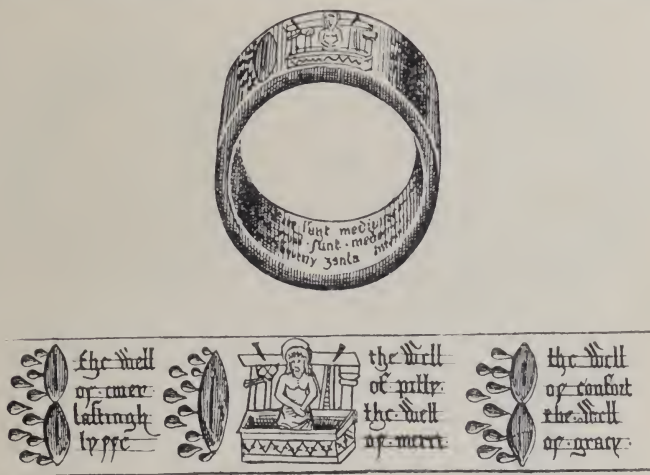 sunt medici
sunt · mede
the Well
of euer
lastingh
lyffe
the Well
of pitte
the Well
of merci
the Well
of confort
the Well
of gracy